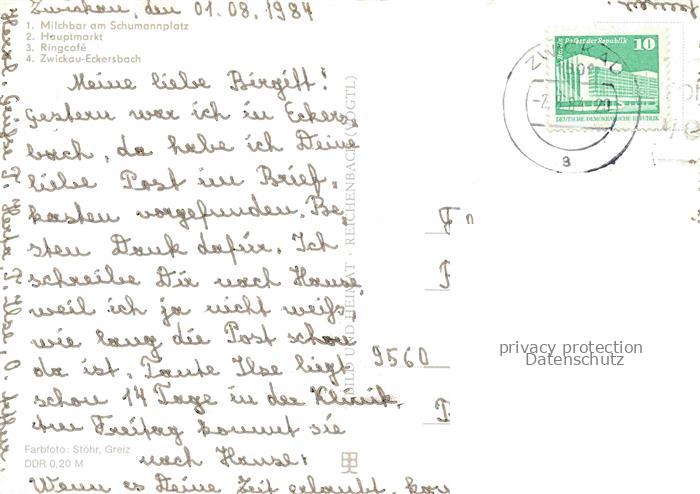 Zwickau, den 01.08.1984
1. Milchbar am Schumannplatz
2. Hauptmarkt
3. Ringcafé
4. Zwickau-Eckersbach
Meine liebe Birgitt!
Gestern war ich in Eckers-
bach, da habe ich Deine
liebe Post im Brief-
kasten vorgefunden. Be-
sten Dank dafür. Ich
schreibe Dir nach Hause,
weil ich ja nicht weiß,
wie lang die Post schon
da ist. Tante Ilse liegt
schon 14 Tage in der Klinik.
Freitag kommt sie
nach Hause.
Wenn es Deine Zeit erlaubt,
Farbfoto: Stöhr, Greiz
DDR 0,20 M
BILD UND HEIMAT · REICHENBACH (VOGTL)
Palast der Republik
10
DEUTSCHE DEMOKRATISCHE REPUBLIK
ZWICKAU
a
9560
privacy protection
Datenschutz
Herzl. Grüße